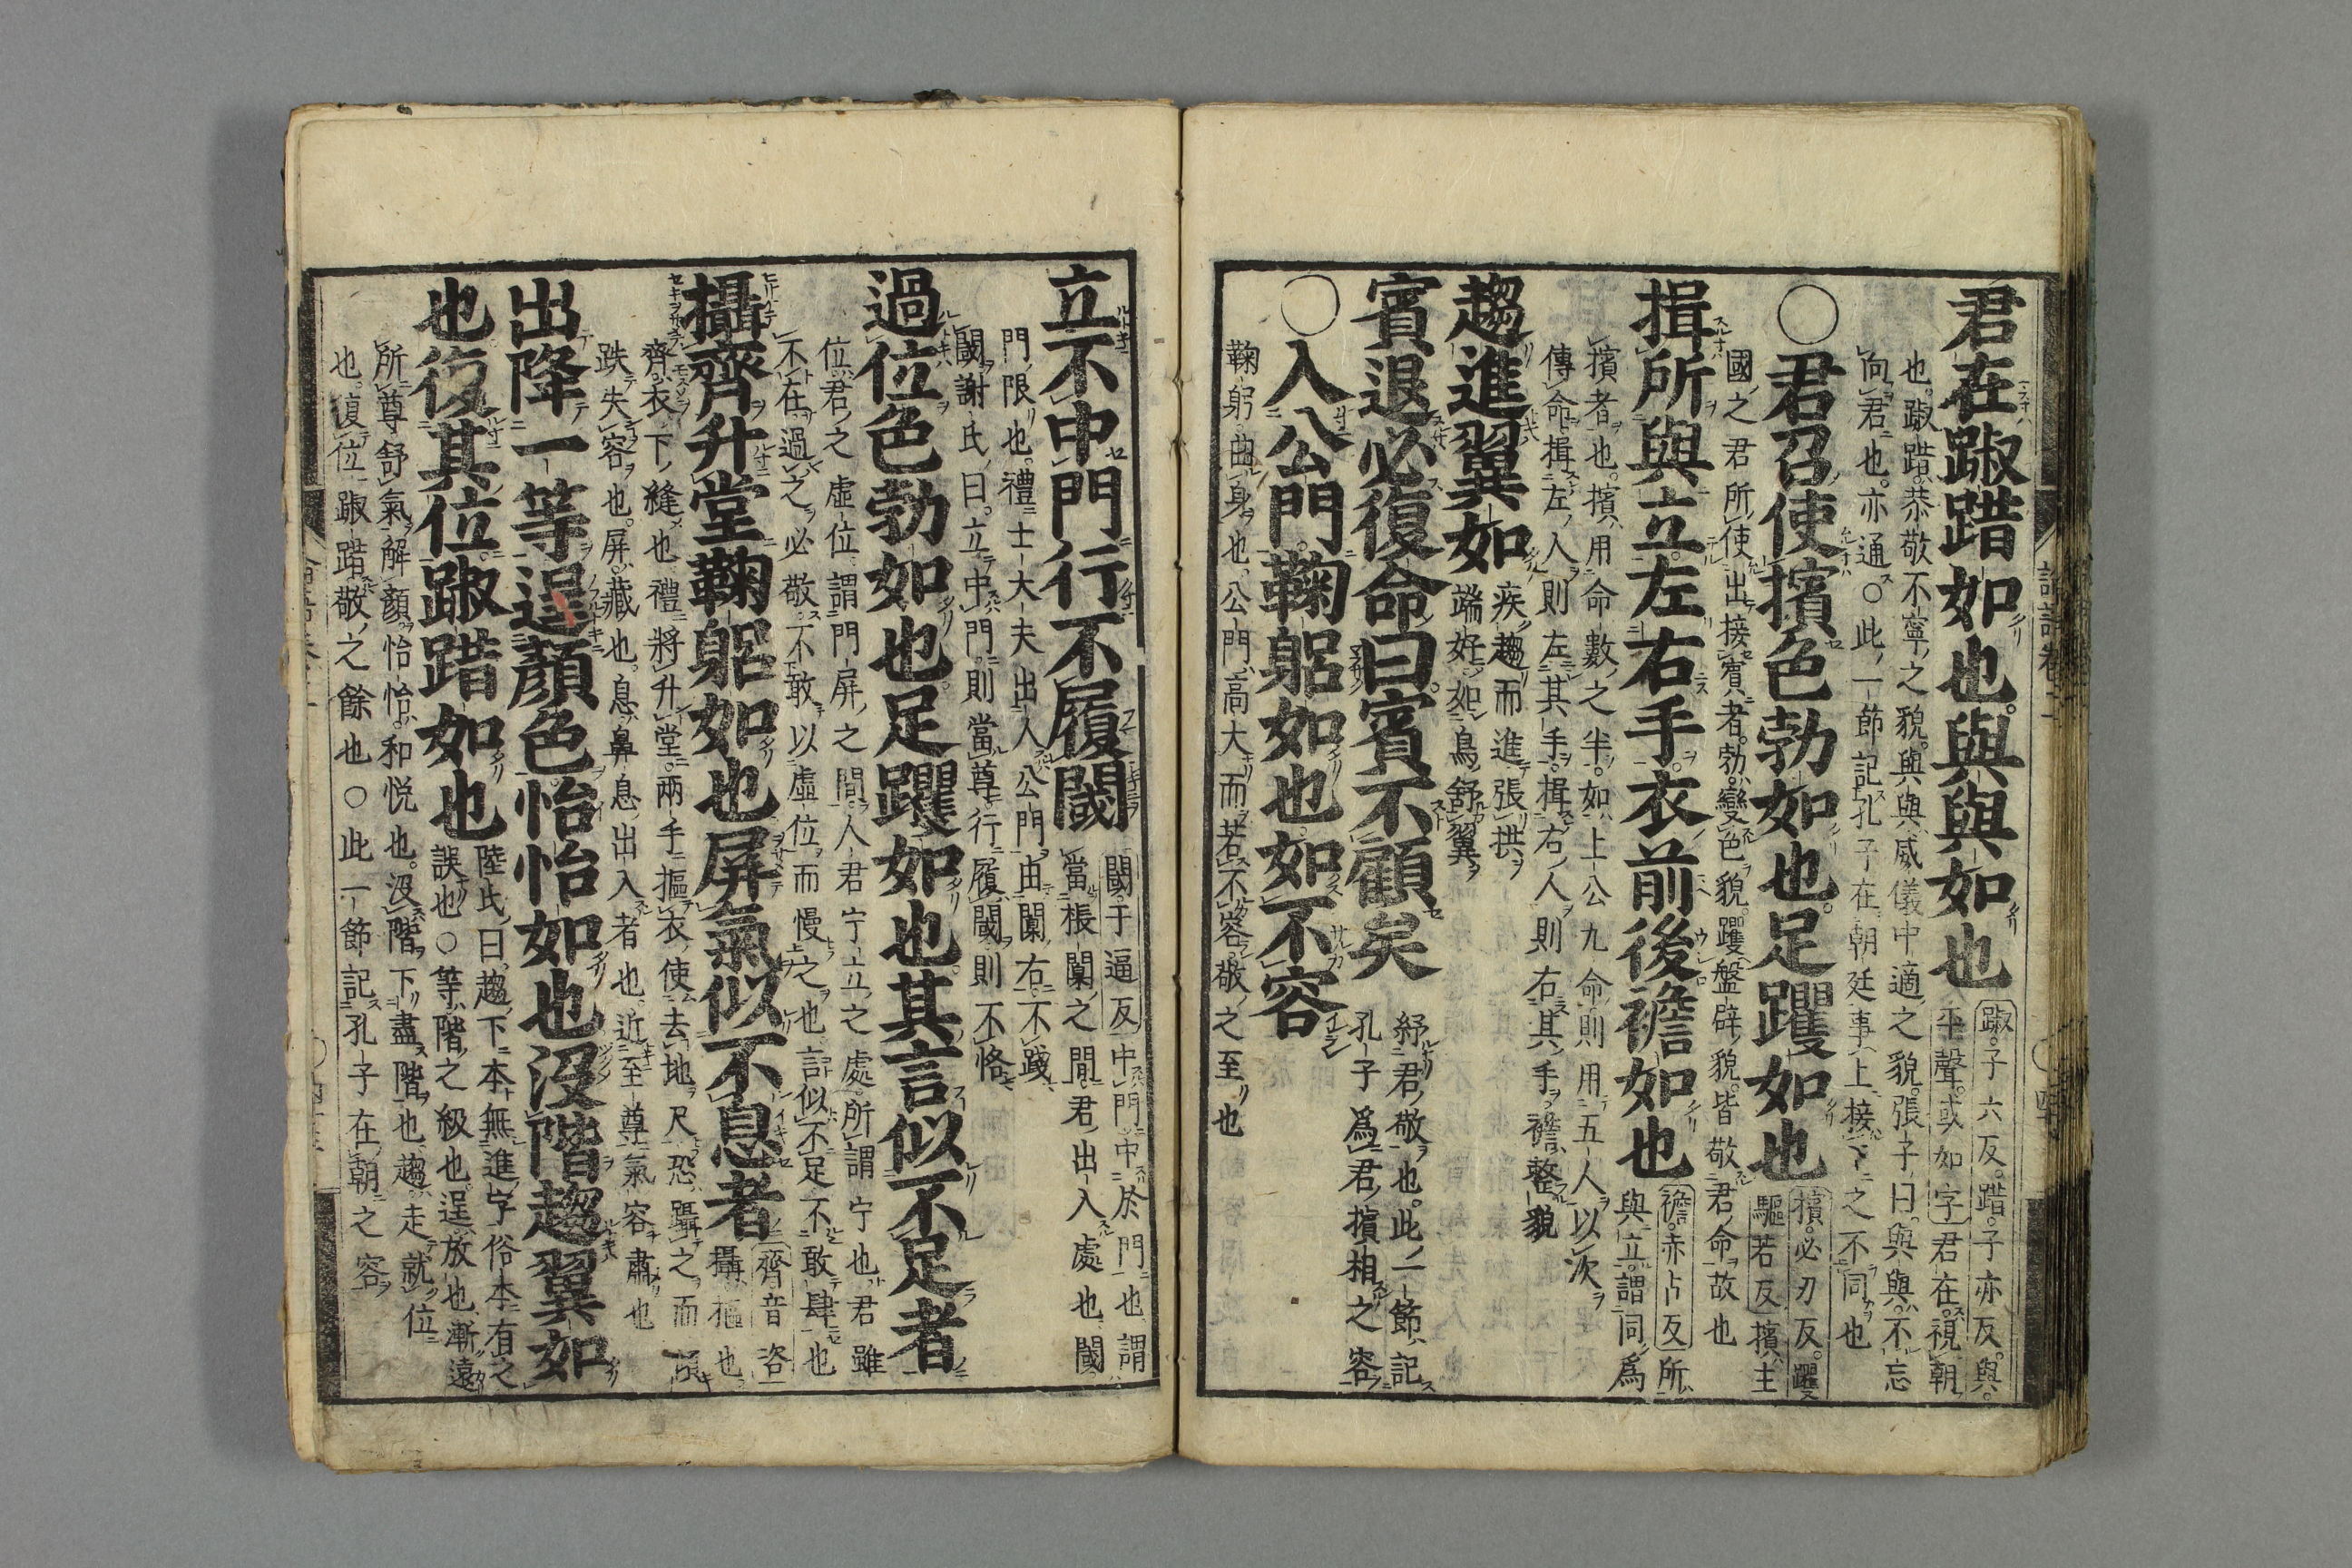 君在踧踖如也與與如也
踧子六反踖子亦反與
平聲或如字君在視朝
也踧踖恭敬不寧之貌與與威儀中適之貌張子曰與與不忘
向君也亦通○此一節記孔子在朝廷事上接下之不同也
○君召使擯色勃如也足躩如也
擯必刃反躩
驅若反擯主
國之君所使出接賓者勃變色貌躩盤辟貌皆敬君命故也
揖所與立左右手衣前後襜如也
襜赤占反所
與立謂同爲
擯者也擯用命數之半如上公九命則用五人以次
傳命揖左人則左其手揖右人則右其手襜整貌
趨進翼如
疾趨而進張拱
端好如鳥舒翼
賓退必復命曰賓不顧矣
紓君敬也此一節記
孔子爲君擯相之容
○入公門鞠躬如也如不容
鞠躬曲身也公門高大而若不容敬之至也
立不中門行不履閾
閾于逼反中門中於門也謂
當棖闑之間君出入處也閾
門限也禮士大夫出入公門由闑右不踐
閾謝氏曰立中門則當尊行履閾則不恪
過位色勃如也足躩如也其言似不足者
位君之虛位謂門屏之間人君宁立之處所謂宁也君雖
不在過之必敬不敢以虛位而慢之也言似不足不敢肆也
攝齊升堂鞠躬如也屏氣似不息者
齊音咨
攝摳也
齊衣下縫也禮將升堂兩手摳衣使去地尺恐躡之而傾
跌失容也屏藏也息鼻息出入者也近至尊氣容肅也
出降一等逞顏色怡怡如也沒階趨翼如
也復其位踧踖如也
陸氏曰趨下本無進字俗本有之
誤也○等階之級也逞放也漸遠
所尊舒氣解顏怡怡和悅也沒階下盡階也趨走就位
也復位踧踖敬之餘也○此一節記孔子在朝之容